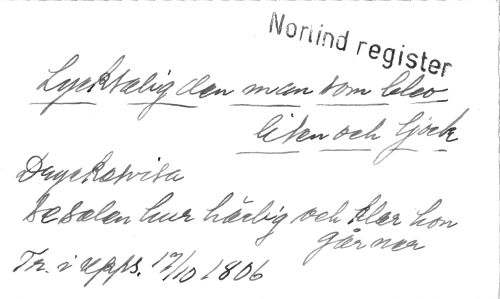 Norlind register
Lycksalig den man som blev
liten och tjock
Dryckesvisa
Se solen hur härlig och klar hon
går ner
Tr. i Upps. 17/10 1806